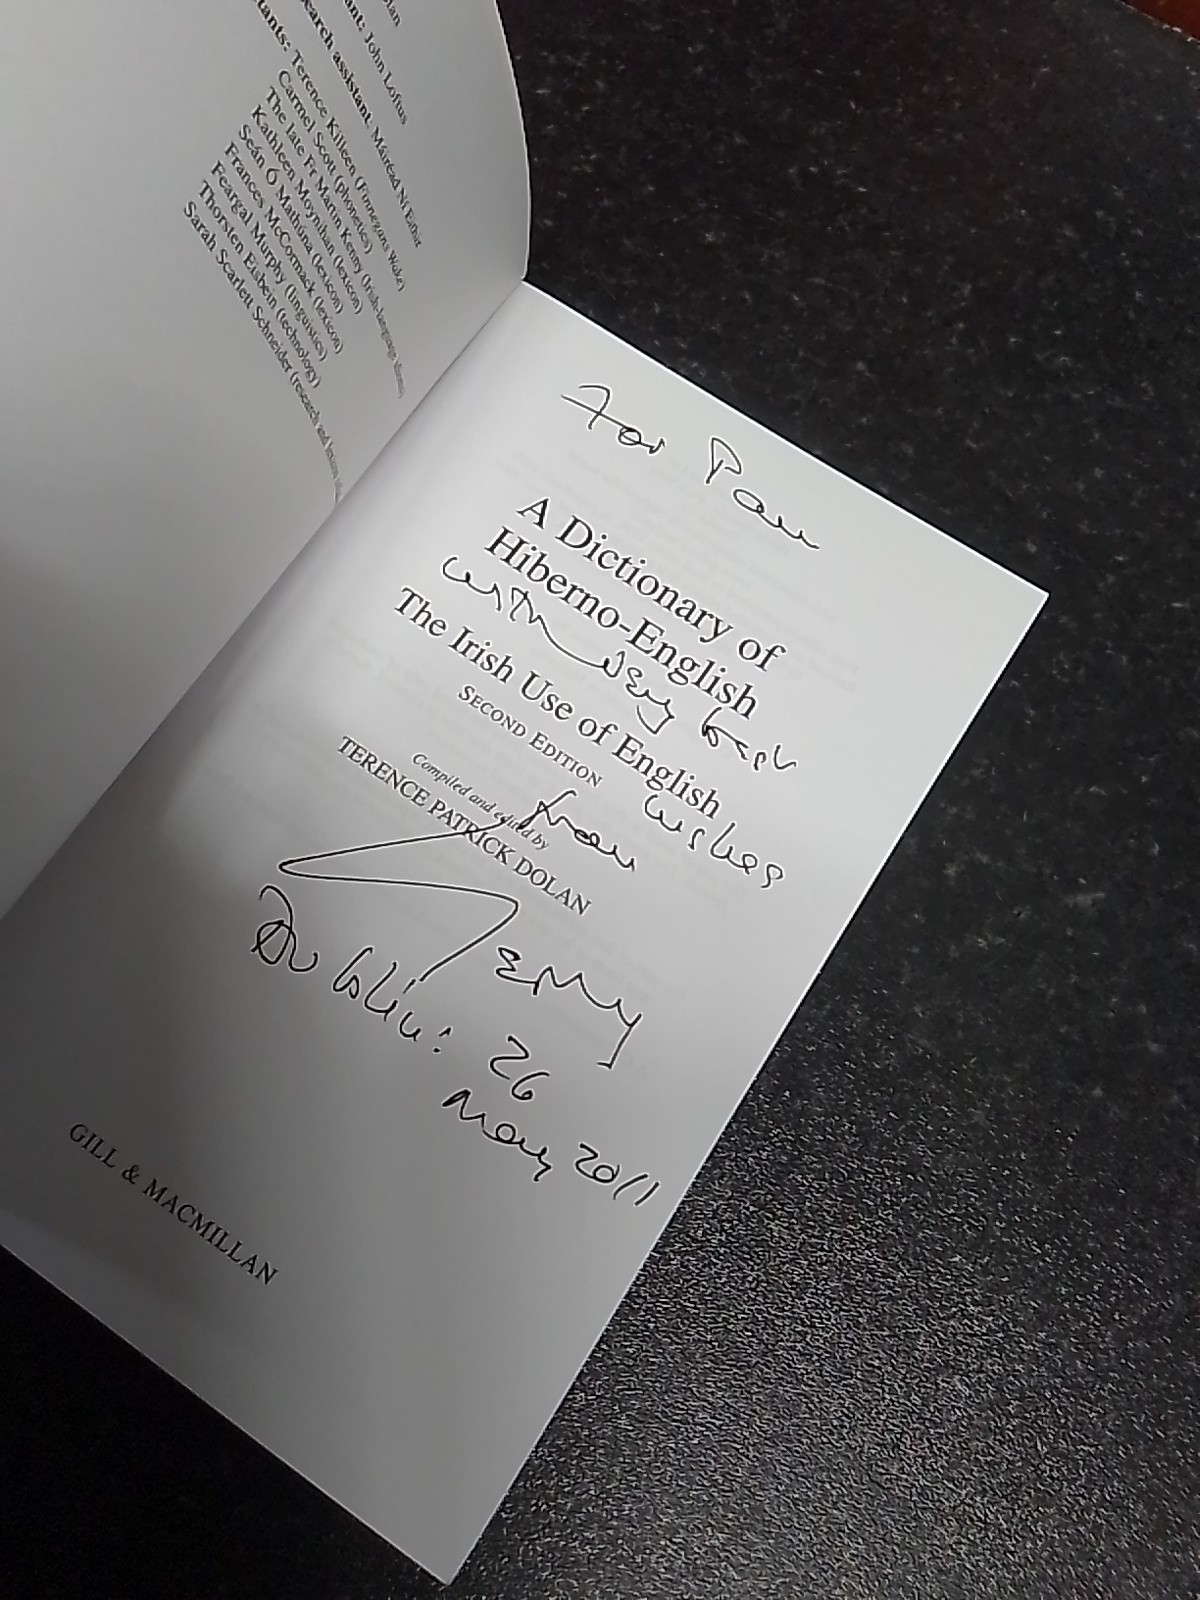 lan
ant: John Loftus
search assistant: Máiréad Ní Eithir
tants: Terence Killeen (Finnegans Wake)
Carmel Scott (phonetics)
The late Fr Martin Kenny (Irish-language
Kathleen Moynihan (lexicon)
Seán Ó Mathúna (lexicon)
Frances McCormack (lexicon)
Feargal Murphy (linguistics)
Thorsten Eisbein (technology)
Sarah Scarlett Schneider (research and
For Pam
A Dictionary of
Hiberno-English
with very best
The Irish Use of English
SECOND EDITION
wishes
from
Compiled and edited by
TERENCE PATRICK DOLAN
Terry
Dublin: 26
May 2011
GILL & MACMILLAN